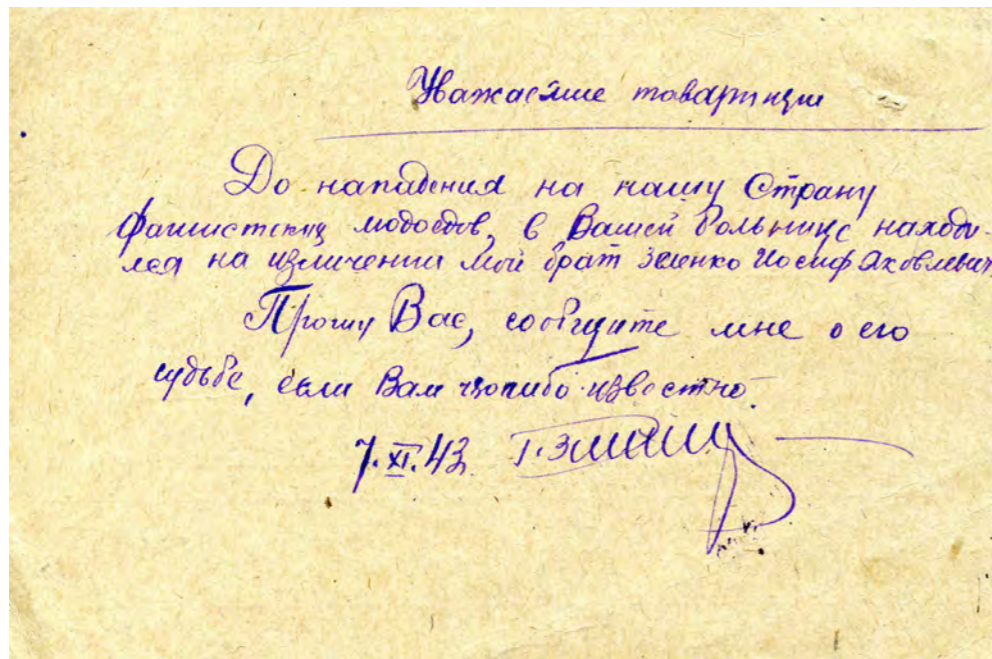 Уважаемые товарищи
До нападения на нашу Страну
фашистских людоедов, в Вашей больнице находи-
лся на изличении мой брат Зеленко Иосиф Яковлевич
Прошу Вас, сообщите мне о его
судьбе, если Вам чтолибо известно.
7.XI.43 Г.